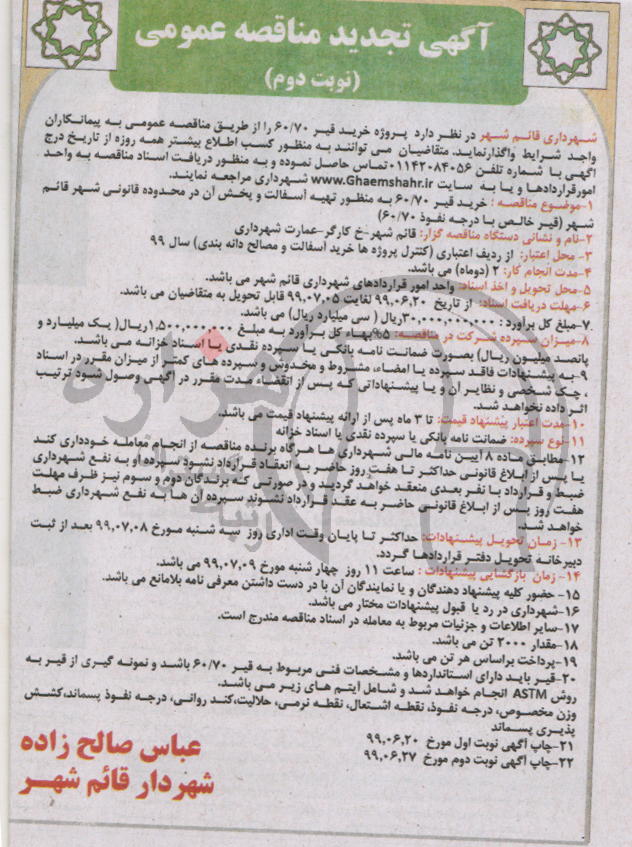 آگهی تجدید مناقصه عمومی
(نوبت دوم)
شهرداری قائم شهر در نظر دارد پروژه خرید قیر ۶۰/۷۰ را از طریق مناقصه عمومی به پیمانکاران
واجد شرایط واگذارنماید. متقاضیان می توانند به منظور کسب اطلاع بیشتر همه روزه از تاریخ درج
آگهی با شماره تلفن ۰۱۱۴۲۰۸۴۰۵۶ تماس حاصل نموده و به منظور دریافت اسناد مناقصه به واحد
امورقراردادها و یا به سایت www.Ghaemshahr.ir شهرداری مراجعه نمایند.
۱-موضوع مناقصه : خرید قیر ۶۰/۷۰ به منظور تهیه آسفالت و پخش آن در محدوده قانونی شهر قائم
شهر (قیر خالص با درجه نفوذ ۶۰/۷۰)
۲-نام و نشانی دستگاه مناقصه گزار: قائم شهر-خ کارگر-عمارت شهرداری
۳- محل اعتبار: از ردیف اعتباری (کنترل پروژه ها خرید آسفالت و مصالح دانه بندی) سال ۹۹
۴-مدت انجام کار: ۲ (دوماه) می باشد.
۵-محل تحویل و اخذ اسناد: واحد امور قراردادهای شهرداری قائم شهر می باشد.
۶-مهلت دریافت اسناد: از تاریخ ۹۹,۰۶,۲۰ لغایت ۹۹,۰۷,۰۵ قابل تحویل به متقاضیان می باشد.
۷-مبلغ کل برآورد : ۳۰,۰۰۰,۰۰۰,۰۰۰ریال ( سی میلیارد ریال) می باشد.
۸-میزان سپرده شرکت در مناقصه: ۵%بهاء کل برآورد به مبلغ ۱,۵۰۰,۰۰۰,۰۰۰ریال( یک میلیارد و
پانصد میلیون ریال) بصورت ضمانت نامه بانکی یا سپرده نقدی یا اسناد خزانه می باشد.
۹-به پیشنهادات فاقد سپرده یا امضاء، مشروط و مخدوش و سپرده های کمتر از میزان مقرر در اسناد
، چک شخصی و نظایر آن و یا پیشنهاداتی که پس از انقضاء مدت مقرر در آگهی وصول شود ترتیب
اثر داده نخواهد شد.
۱۰-مدت اعتبار پیشنهاد قیمت: تا ۳ ماه پس از ارائه پیشنهاد قیمت می باشد.
۱۱-نوع سپرده: ضمانت نامه بانکی یا سپرده نقدی یا اسناد خزانه
۱۲-مطابق ماده ۸ آیین نامه مالی شهرداری ها هرگاه برنده مناقصه از انجام معامله خودداری کند
یا پس از ابلاغ قانونی حداکثر تا هفت روز حاضر به انعقاد قرارداد نشود سپرده او به نفع شهرداری
ضبط و قرارداد با نفر بعدی منعقد خواهد گردید و در صورتی که برندگان دوم و سوم نیز ظرف مهلت
هفت روز پس از ابلاغ قانونی حاضر به عقد قرارداد نشوند سپرده آن ها به نفع شهرداری ضبط
خواهد شد.
۱۳- زمان تحویل پیشنهادات: حداکثر تا پایان وقت اداری روز سه شنبه مورخ ۹۹,۰۷,۰۸ بعد از ثبت
دبیرخانه تحویل دفتر قراردادها گردد.
۱۴- زمان بازگشایی پیشنهادات : ساعت ۱۱ روز چهار شنبه مورخ ۹۹,۰۷,۰۹ می باشد.
۱۵- حضور کلیه پیشنهاد دهندگان و یا نمایندگان آن با در دست داشتن معرفی نامه بلامانع می باشد.
۱۶-شهرداری در رد یا قبول پیشنهادات مختار می باشد.
۱۷-سایر اطلاعات و جزئیات مربوط به معامله در اسناد مناقصه مندرج است.
۱۸-مقدار ۲۰۰۰ تن می باشد.
۱۹-پرداخت براساس هر تن می باشد.
۲۰-قیر باید دارای استانداردها و مشخصات فنی مربوط به قیر ۶۰/۷۰ باشد و نمونه گیری از قیر به
روش ASTM انجام خواهد شد و شامل آیتم های زیر می باشد.
وزن مخصوص، درجه نفوذ، نقطه اشتعال، نقطه نرمی، حلالیت،کند روانی، درجه نفوذ پسماند،کشش
پذیری پسماند
۲۱-چاپ آگهی نوبت اول مورخ ۹۹,۰۶,۲۰
۲۲-چاپ آگهی نوبت دوم مورخ ۹۹,۰۶,۲۷
عباس صالح زاده
شهردار قائم شهر
هزاره